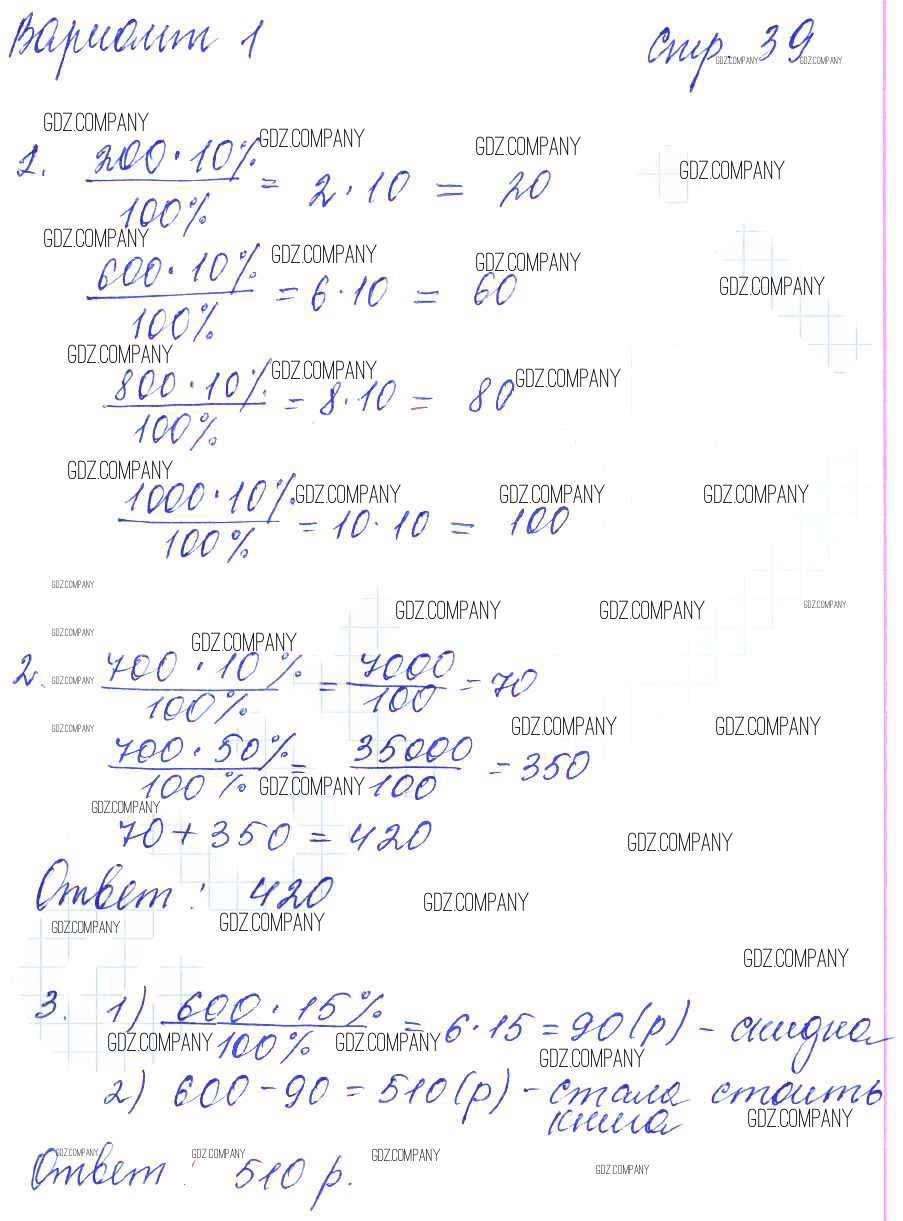 Вариант 1 стр. 39
1. 200 · 10% / 100% = 2 · 10 = 20
600 · 10% / 100% = 6 · 10 = 60
800 · 10% / 100% = 8 · 10 = 80
1000 · 10% / 100% = 10 · 10 = 100
2. 700 · 10% / 100% = 7000 / 100 = 70
700 · 50% / 100% = 35000 / 100 = 350
70 + 350 = 420
Ответ: 420
3. 1) 600 · 15% / 100% = 6 · 15 = 90 (р) - скидка
2) 600 - 90 = 510 (р) - стала стоить
книга
Ответ: 510 р.
GDZ.COMPANY